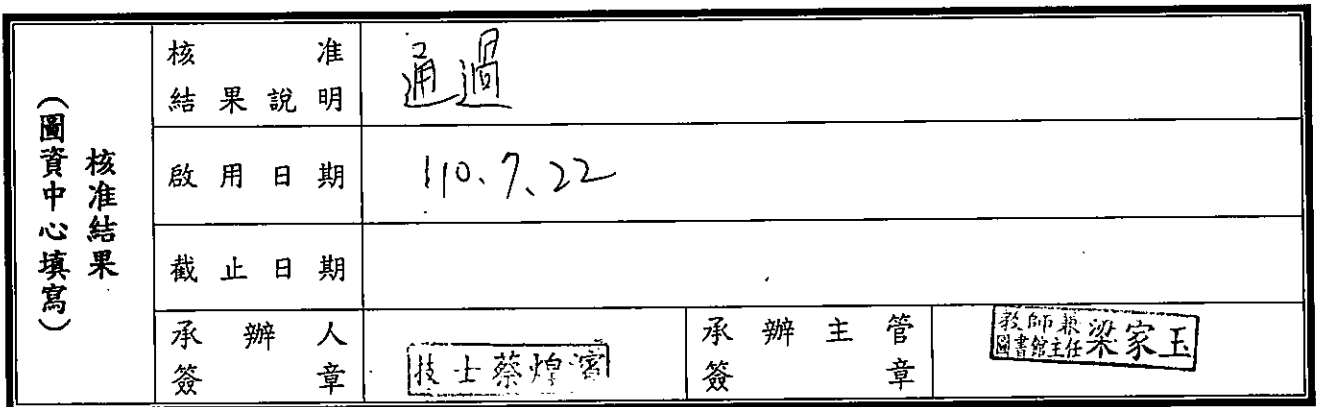 核准結果
（圖資中心填寫）
核准
結果說明
通過
啟用日期
110、7、22
截止日期
承辦人
簽章
技士蔡煌濱
承辦主管
簽章
教師兼
圖書館主任
梁家玉